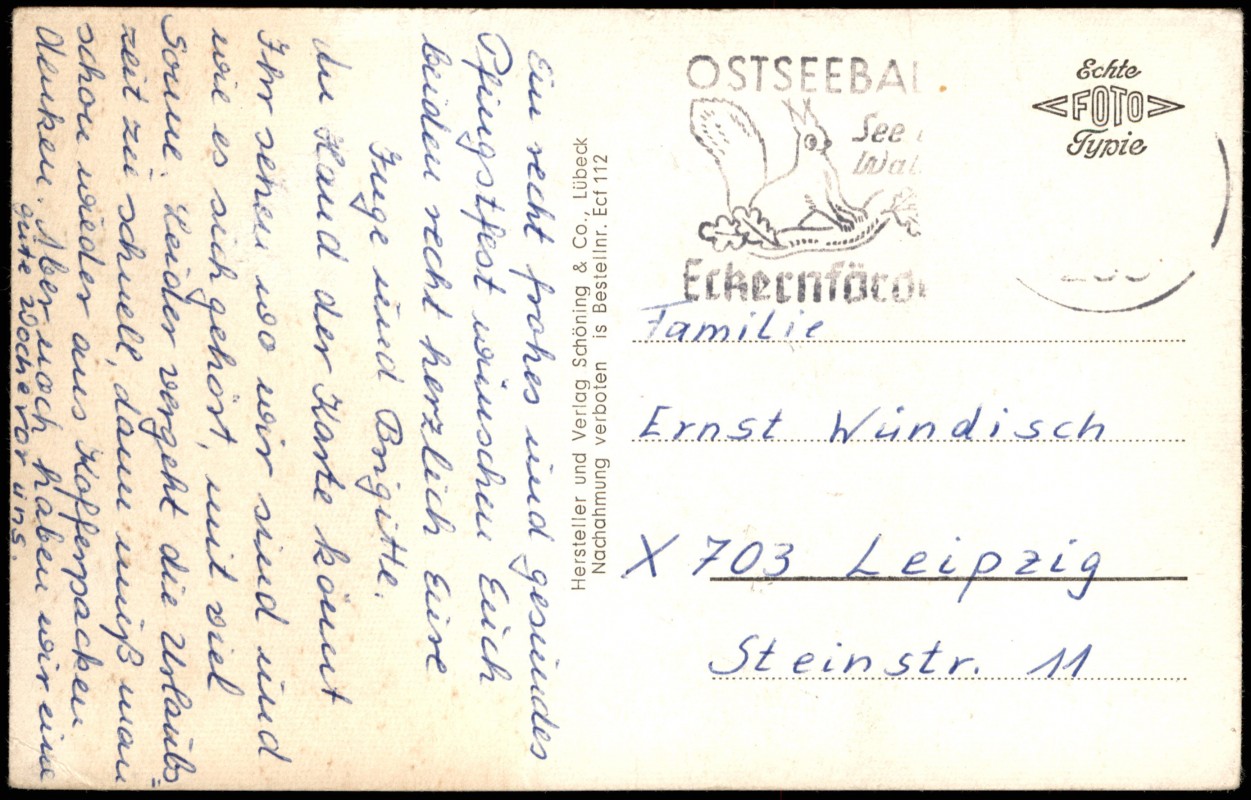 Ein recht frohes und gesundes
Pfingstfest wünschen Euch
beiden recht herzlich Eure
Inge und Brigitte.
An Hand der Karte könnt
Ihr sehen wo wir sind und
wie es sich gehört, mit viel
Sonne. Leider vergeht die Urlaubs=
zeit zu schnell, dann muß man
schon wieder ans Kofferpacken
denken. Aber noch haben wir eine
gute Woche vor uns.
Hersteller und Verlag Schöning & Co., Lübeck
Nachahmung verboten is Bestellnr. Ecf 112
OSTSEEBA
See
Wal
Eckernförd
Echte
FOTO
Typie
Familie
Ernst Wündisch
X 703 Leipzig
Steinstr. 11